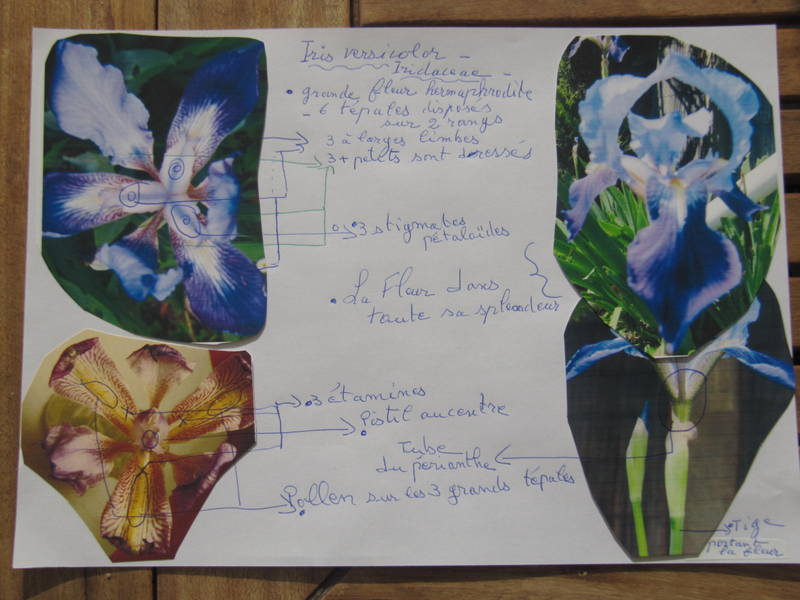 Iris versicolor -
Iridaceae -
• grande fleur hermaphrodite
- 6 tépales disposés
sur 2 rangs
3 à larges limbes
3 + petits sont dressés
3 stigmates
pétaloïdes
• La Fleur dans
toute sa splendeur
3 étamines
Pistil au centre
Tube
du périanthe
Pollen sur les 3 grands tépales
Tige
portant
la fleur